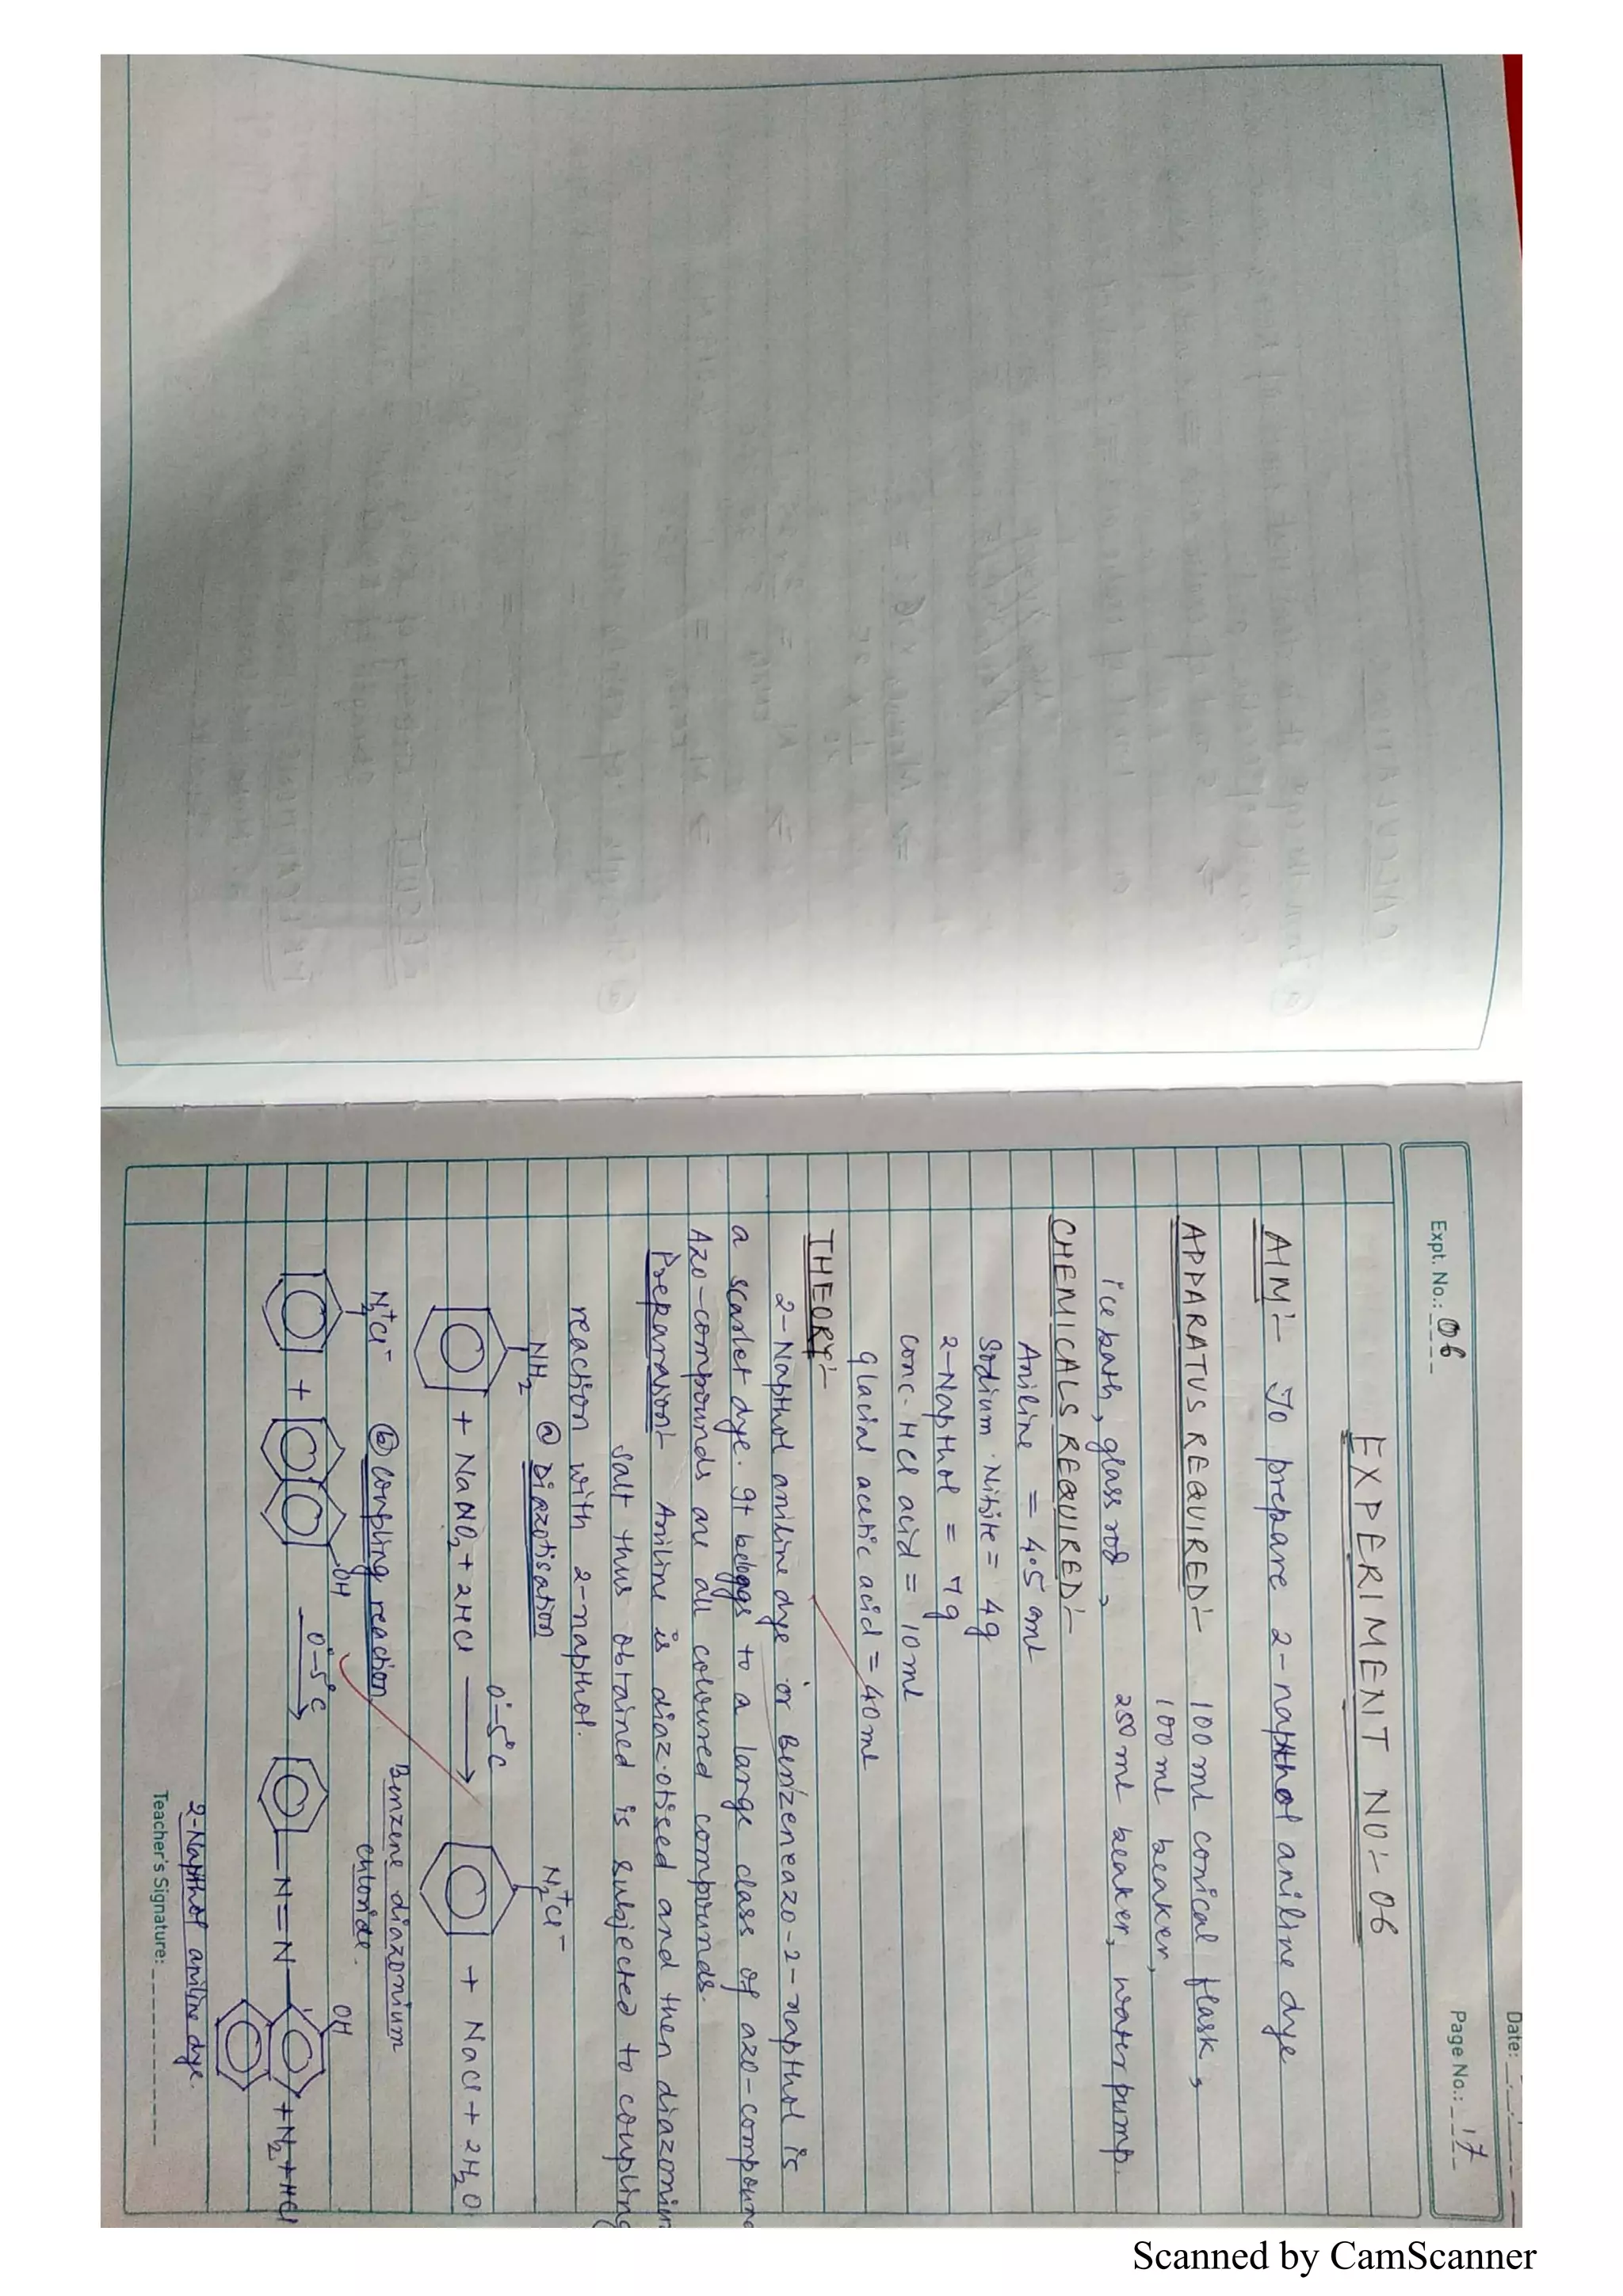 Date:
Expt. No.: 06
Page No.: 17
EXPERIMENT NO:- 06
AIM:- To prepare 2-napthol aniline dye
APPARATUS REQUIRED:- 100 ml conical flask,
100 ml beaker,
ice bath, glass rod, 250 ml beaker, water pump.
CHEMICALS REQUIRED:-
Aniline = 4.5 ml
Sodium Nitite = 4g
2-Napthol = 7g
Conc. HCl acid = 10 ml
glacial acetic acid = 40 ml
THEORY:-
2-Napthol aniline dye or Benzeneazo-2-napthol is
a scarlet dye. It belogs to a large class of azo-compound
Azo-compounds are all coloured compounds.
Preparation:- Aniline is diazotised and then diazonium
salt thus obtained is subjected to coupling
reaction with 2-napthol.
@ Diazotisation
NH2 + NaNO2 + 2HCl 0°-5°C N2+Cl- + NaCl + 2H2O
Benzene diazonium
chloride.
ⓑ Coupling reaction
N2+Cl- + OH 0°-5°C N=N OH + N2 + HCl
2-Napthol aniline dye.
Teacher's Signature:
Scanned by CamScanner